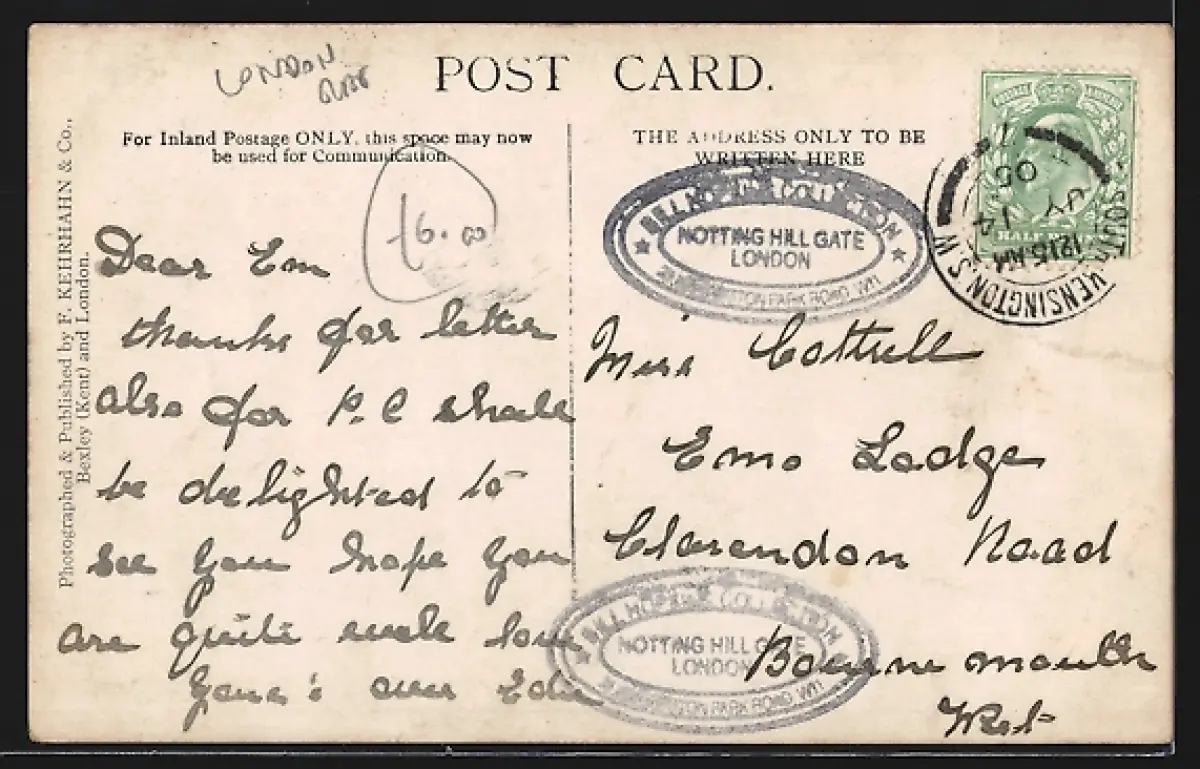 LONDON
POST CARD.
For Inland Postage ONLY, this space may now
be used for Communication.
THE ADDRESS ONLY TO BE
WRITTEN HERE
Photographed & Published by F. KEHRHAHN & Co.,
Bexley (Kent) and London.
£6.00
Dear Em
thanks for letter
also for P.C shall
be delighted to
see you hope you
are quite well love
Your's ever Edie
Miss Cottrell
Emo Lodge
Clarendon Road
Bournemouth
West
HALF PENNY
SOUTH KENSINGTON S.W
12 15 AM
JY 14
05
NOTTING HILL GATE
LONDON
PARK ROAD. W11
NOTTING HILL GATE
LONDON
PARK ROAD. W11